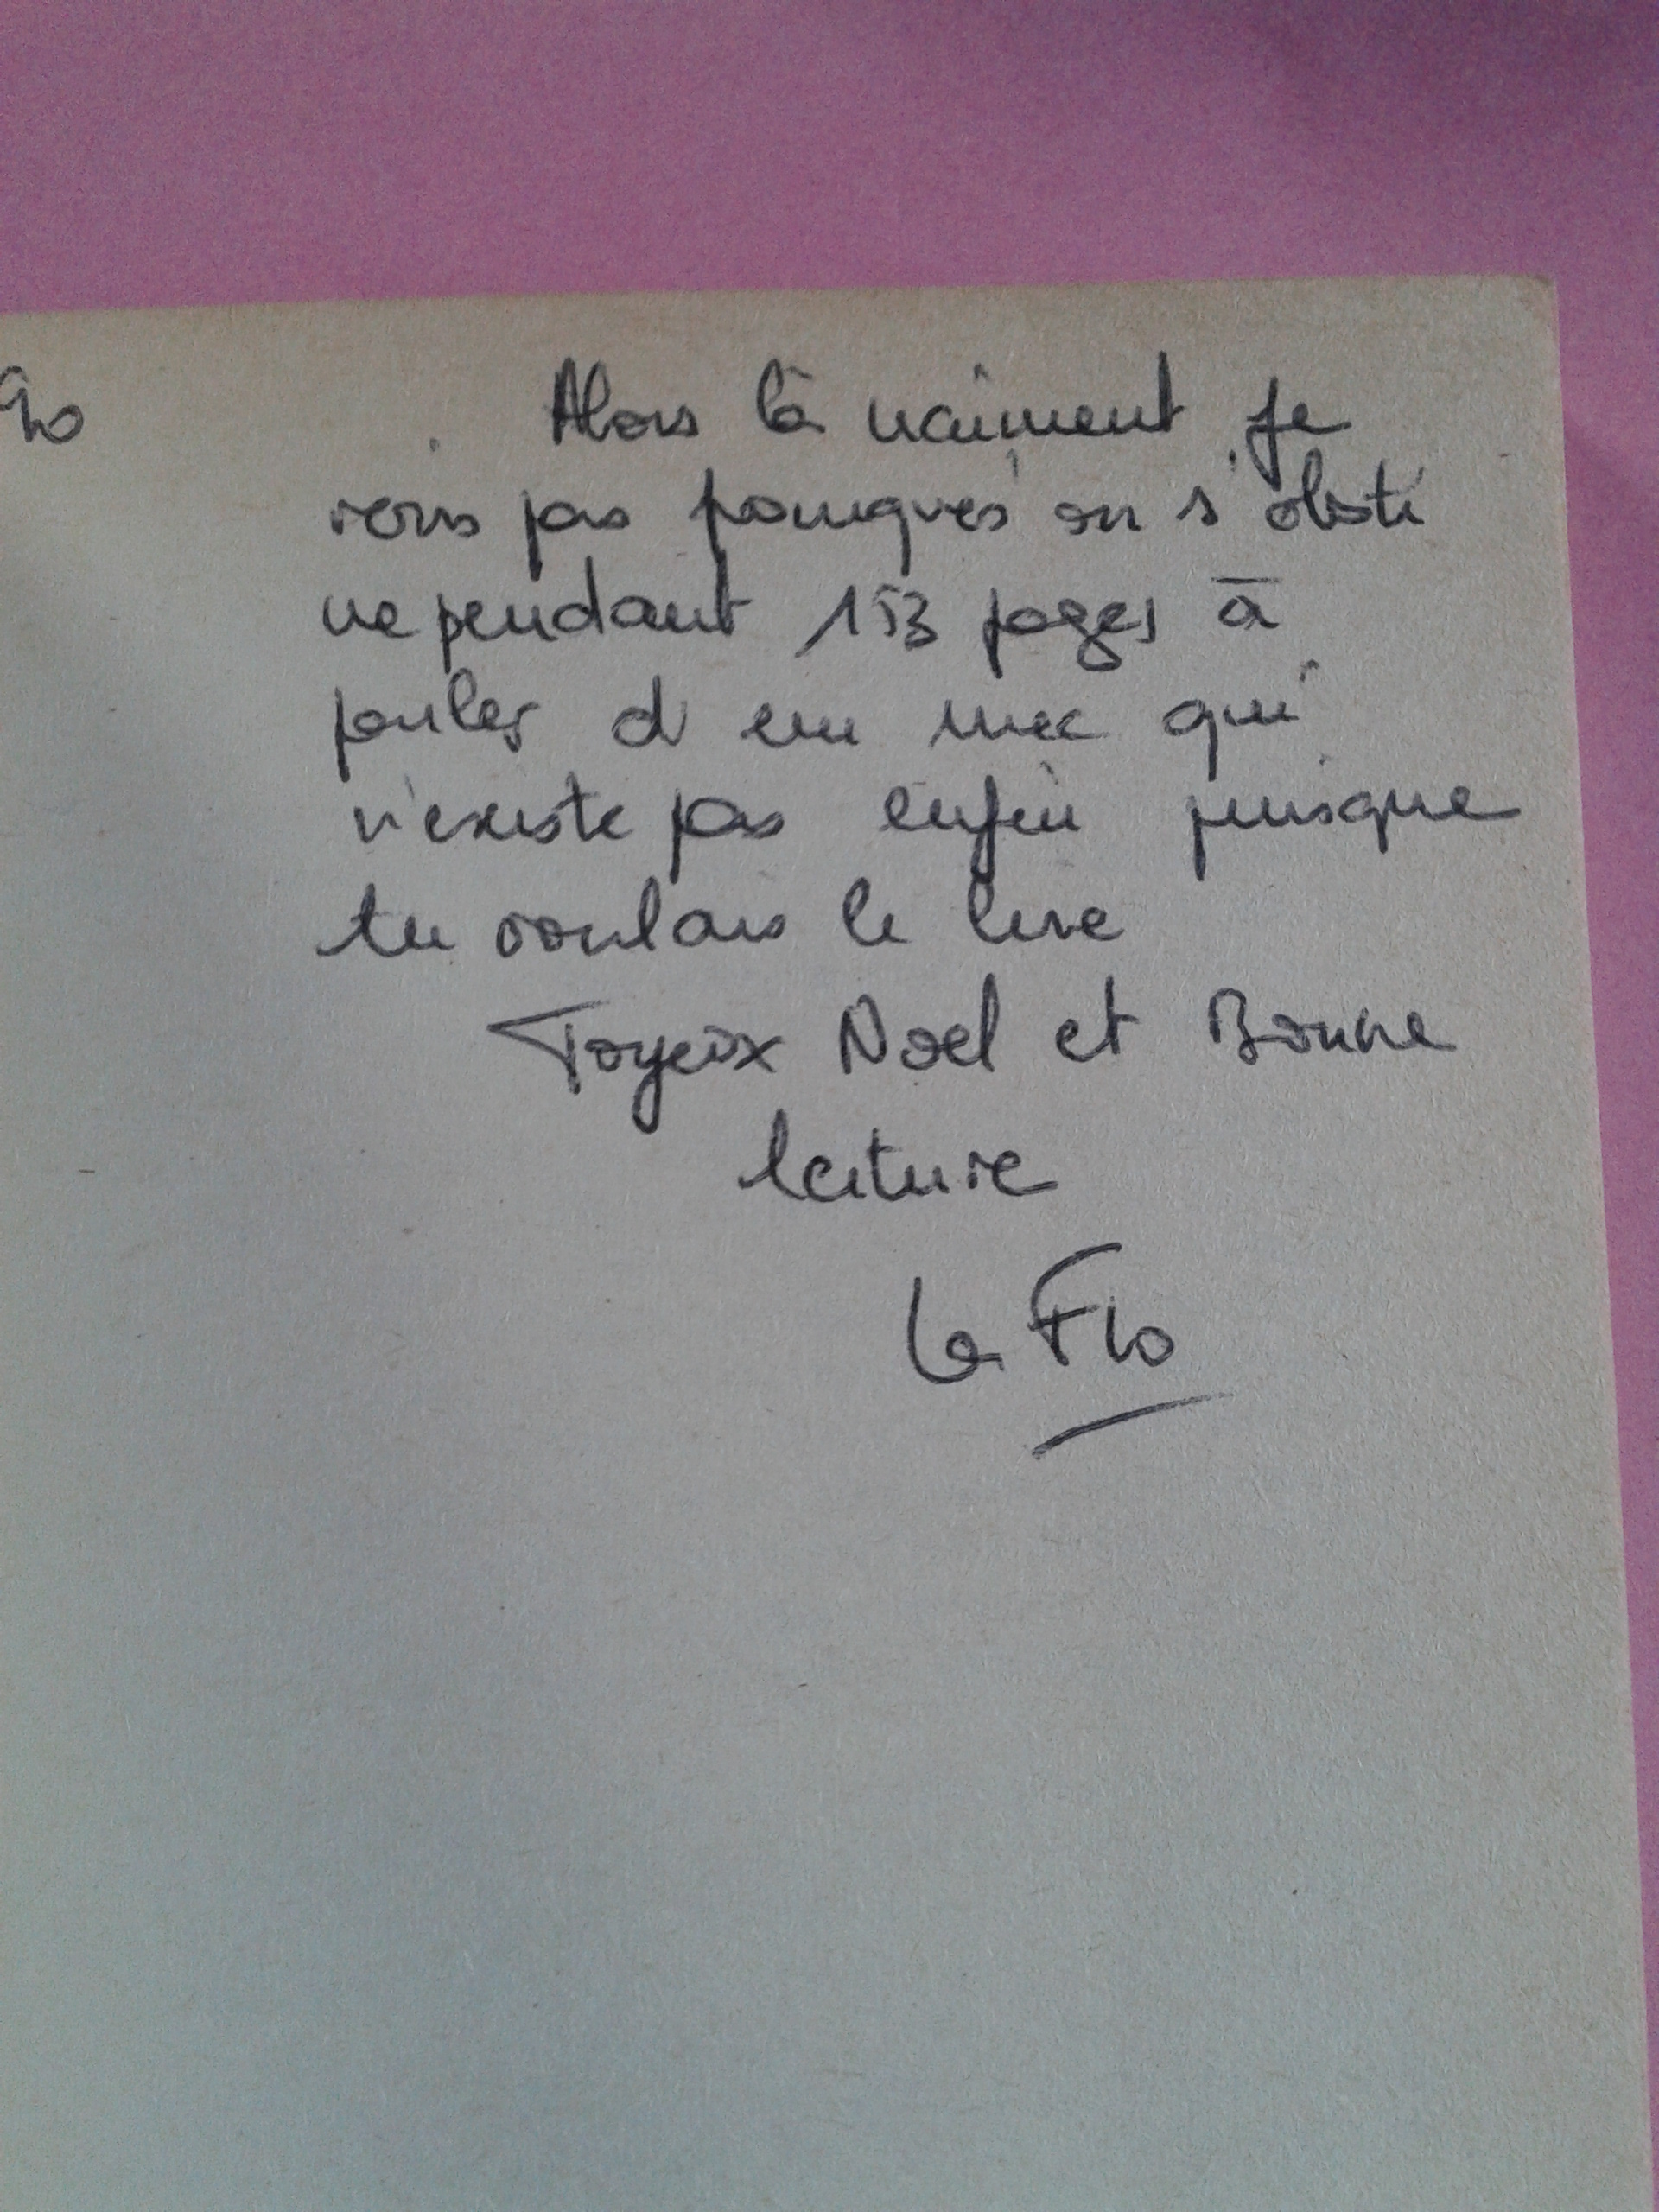 90
Alors là vraiment je
vois pas pourquoi on s'obsti
ne pendant 153 pages à
parler d'un mec qui
n'existe pas enfin puisque
tu voulais le livre
Joyeux Noel et Bonne
lecture
La Flo